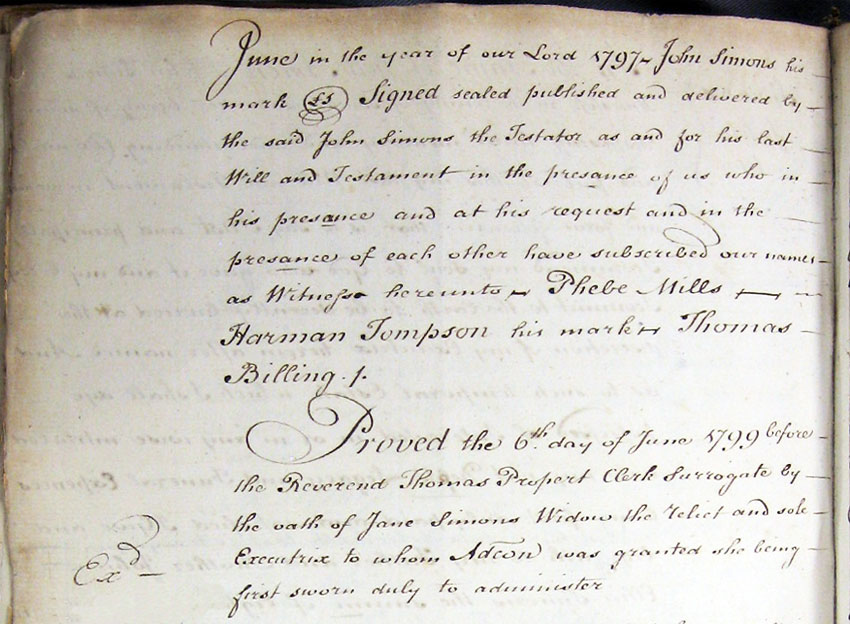 June in the year of our Lord 1797 John Simons his
mark LS Signed sealed published and delivered by
the said John Simons the Testator as and for his last
Will and Testament in the presance of us who in
his presance and at his request and in the
presance of each other have subscribed our names
as Witness hereunto Phebe Mills
Harman Tompson his mark Thomas
Billing
Proved the 6th day of June 1799 before
the Reverend Thomas Propert Clerk Surrogate by
the oath of Jane Simons Widow the relict and sole
Exd
Executrix to whom Adcon was granted she being
first sworn duly to administer